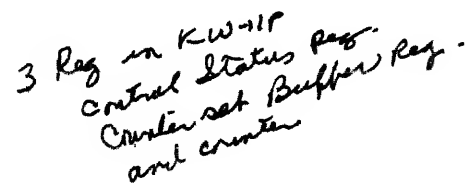 3 Reg in KW-11P
Control Status Reg.
Counter set Buffer Reg.
and counter